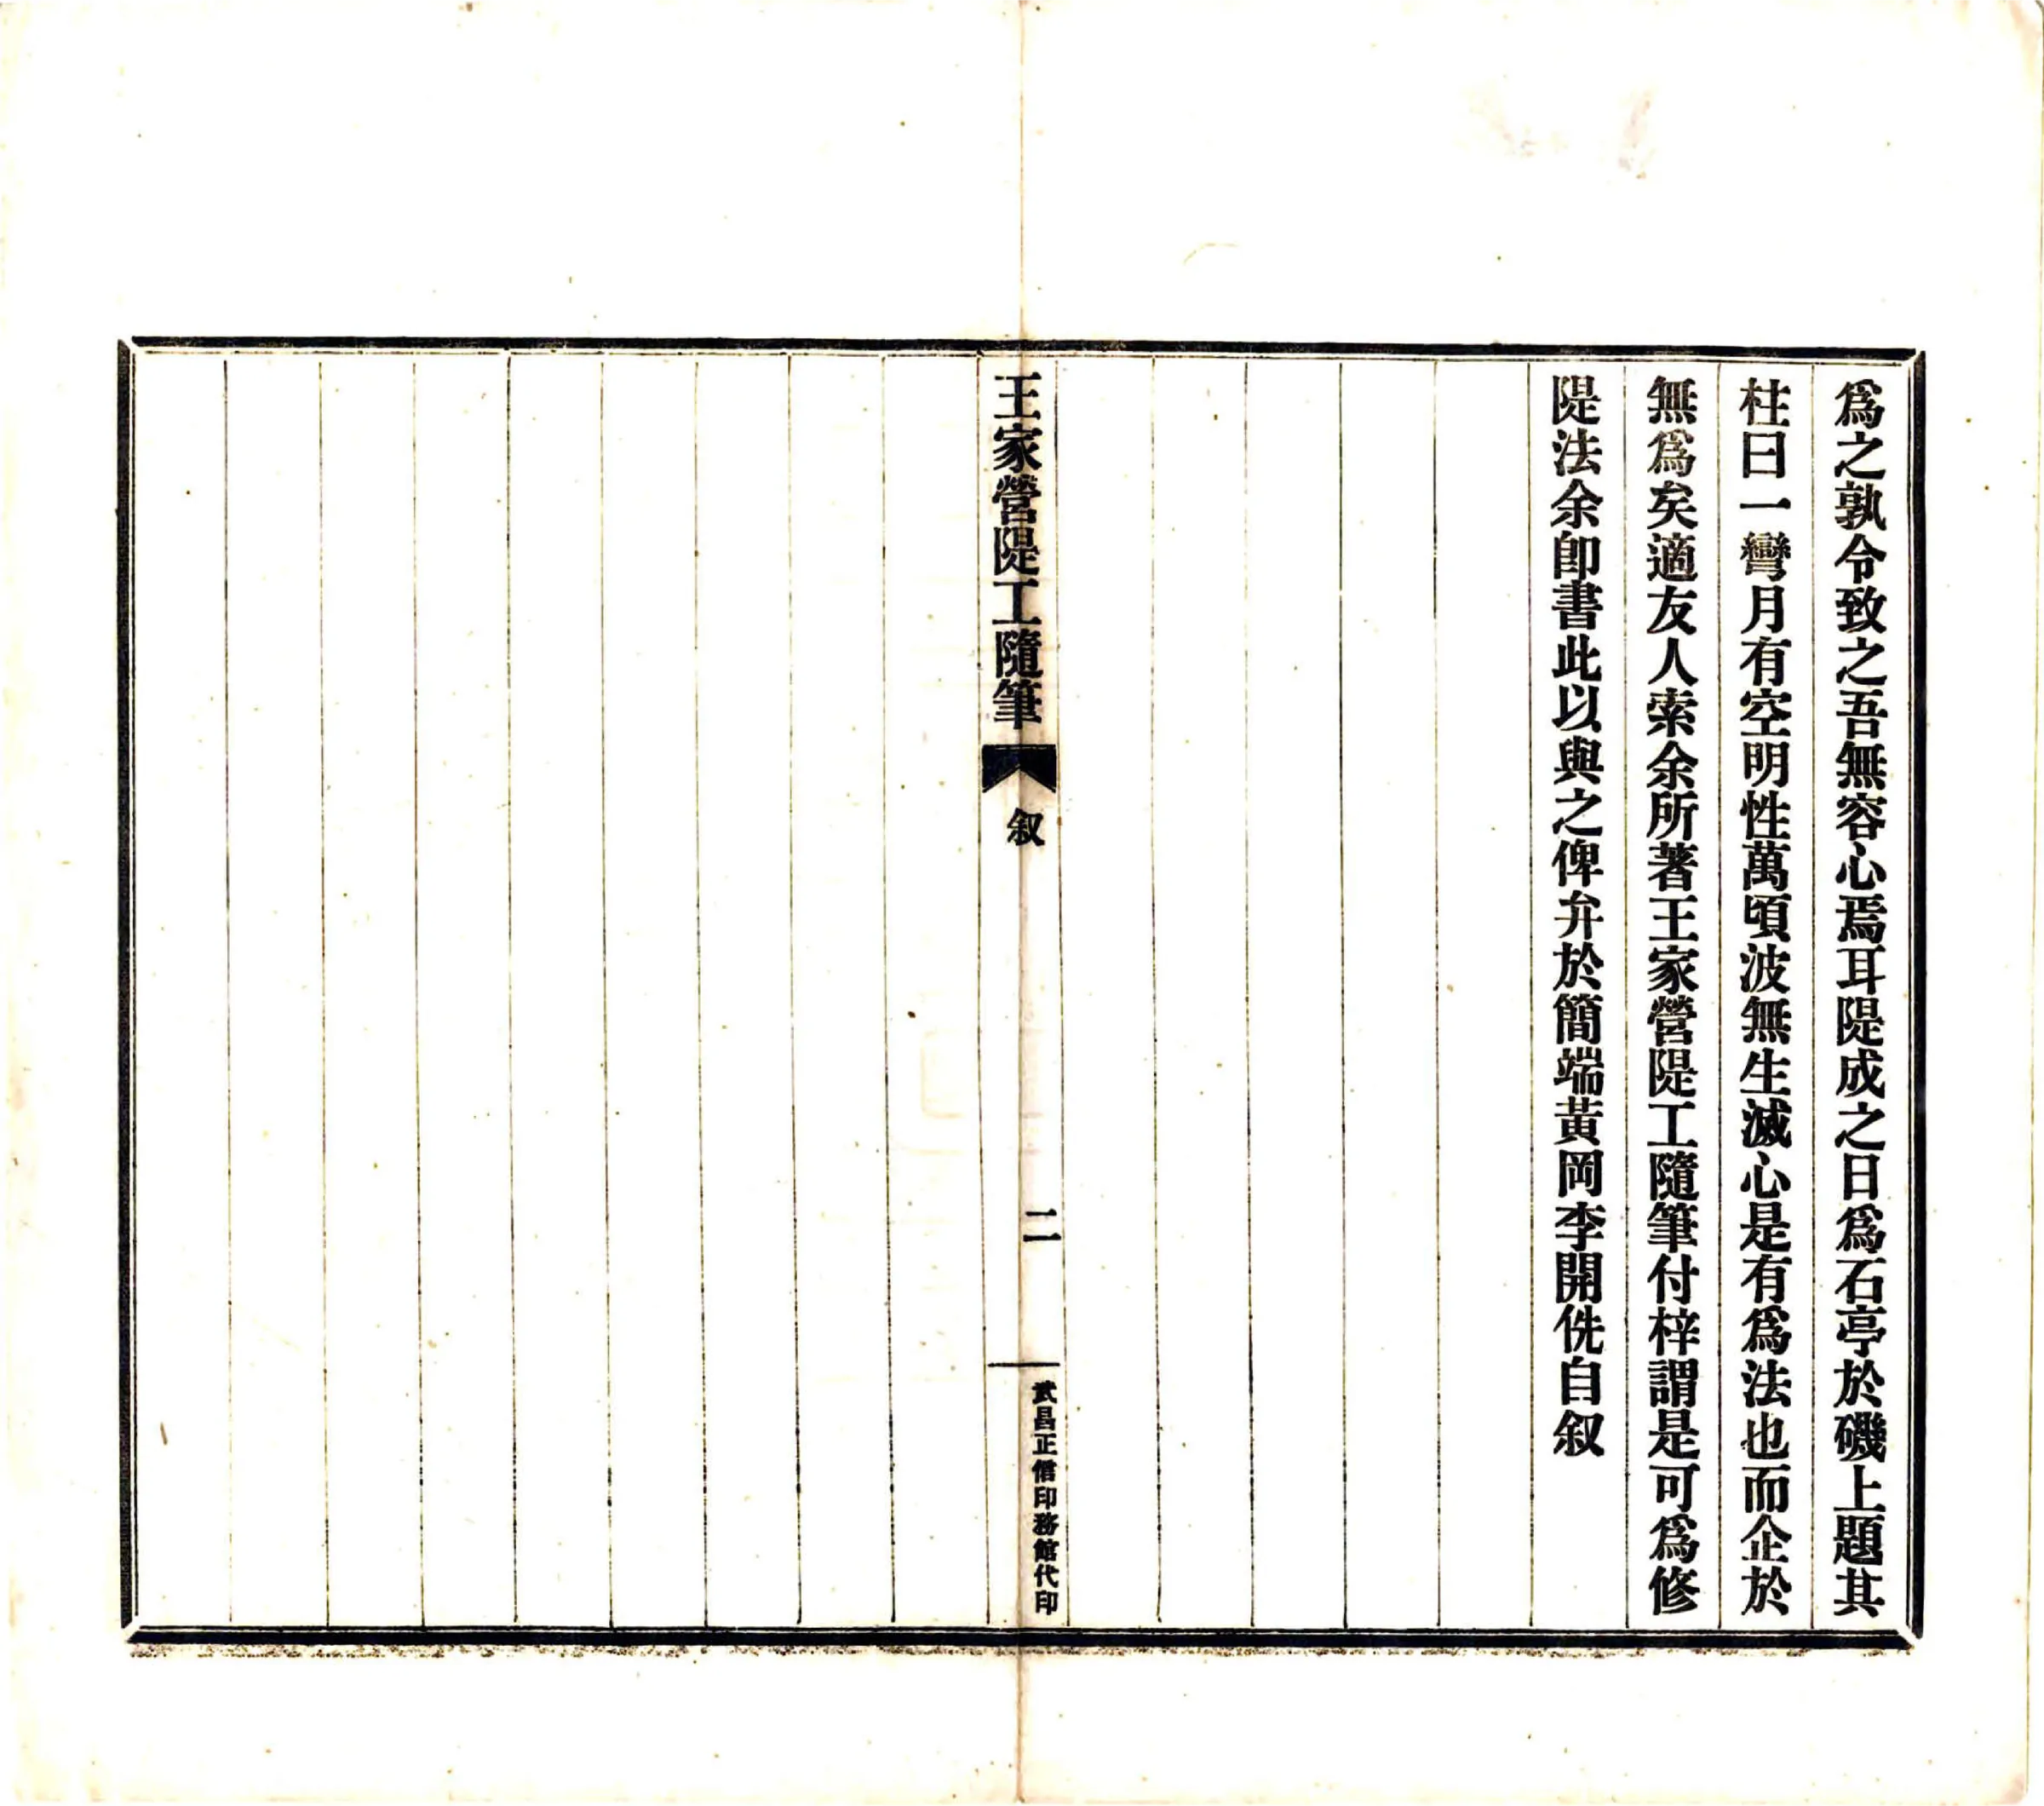 爲之孰令致之吾無容心焉耳隄成之日爲石亭於磯上題其
柱曰一彎月有空明性萬頃波無生滅心是有爲法也而企於
無爲矣適友人索余所著王家營隄工隨筆付梓謂是可爲修
隄法余卽書此以與之俾弁於簡端黃岡李開侁自叙
王家營隄工隨筆
叙
二
武昌正信印務館代印